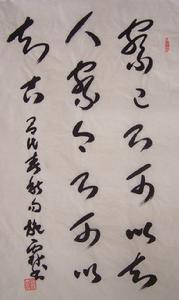 察己则可以知
人察今则可以
知古 吕氏春秋句